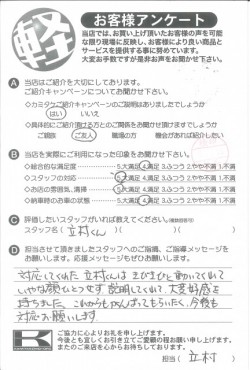 軽
お客様アンケート
当店では、お買い上げ頂いたお客様の声を可能
な限り現場に反映し、お客様により良い商品と
サービスを提供する事に努めています。
大変お手数ですが是非お声をお聞かせ下さい。
A 当店はご紹介を大切にしております。
ご紹介キャンペーンについてお聞かせ下さい。
◇カミタケご紹介キャンペーンのご説明はありましたでしょうか
はい いいえ
◇具体的にご紹介頂ける方とのご関係をお聞かせ頂けますでしょうか
ご親族 ご友人 職場の方 機会があれば紹介したい
B 当店を実際にご利用になった印象をお聞かせ下さい。
◇総合的な満足度 5.大満足 4.満足 3.ふつう 2.やや不満 1.不満
◇スタッフの対応 5.大満足 4.満足 3.ふつう 2.やや不満 1.不満
◇お店の雰囲気、清掃 5.大満足 4.満足 3.ふつう 2.やや不満 1.不満
◇納車時のお車の状態 5.大満足 4.満足 3.ふつう 2.やや不満 1.不満
C 評価したいスタッフがいれば教えてください。(複数回答可)
スタッフ名( 立村くん )
D 担当させて頂きましたスタッフへのご指摘、ご指導メッセージを
お願いします。応援メッセージもぜひお願いします。
対応してくれた立村くんはきびきびと動いてくれて
いやな顔ひとつせず説明してくれて、大変好感を
持ちました。これからもがんばってもらいたく、今後も
対応お願いします
K
ご協力に心よりお礼を申し上げます。
今後とも宜しくお引き立てご愛顧の程お願い申し上げます。
またのご来店を心からお待ちしております。
担当( 立村 )